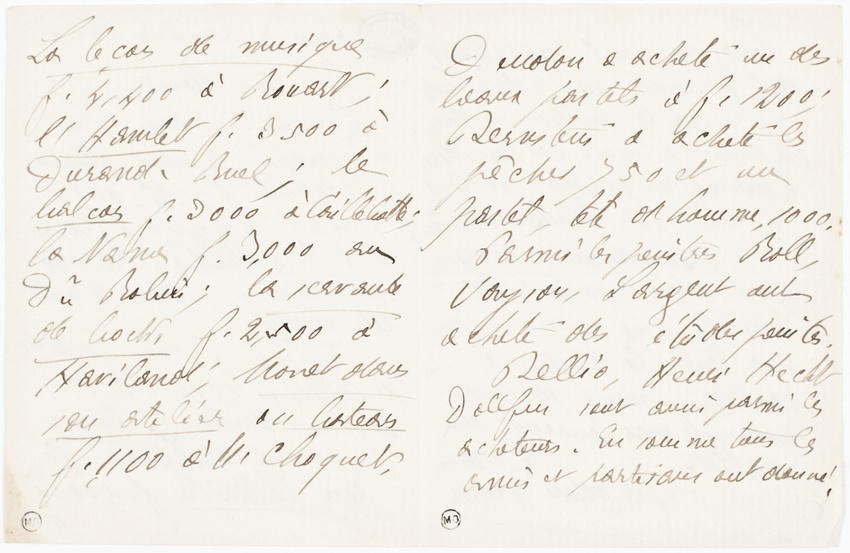 La leçon de musique
f. 4,400 à Rouart;
l'Hamlet f. 3500 à
Durand-Ruel; le
balcon f. 3000 à Caillebotte;
la Nana f. 3,000 au
Dr Robin; la servante
de bocks f. 2,500 à
Haviland; Monet dans
son atelier en bateau
f. 1100 à M. Choquet.
a acheté un des
beaux pastels à f. 1200;
Bernstein a acheté les
pêches 750 et un
pastel, tête d'homme, 1000.
Parmi les peintres Roll,
Sargent ont
acheté des études peintes.
Bellio, Henri Hecht
sont aussi parmi les
acheteurs. En somme tous les
amis et partisans ont donné!
MO
MO